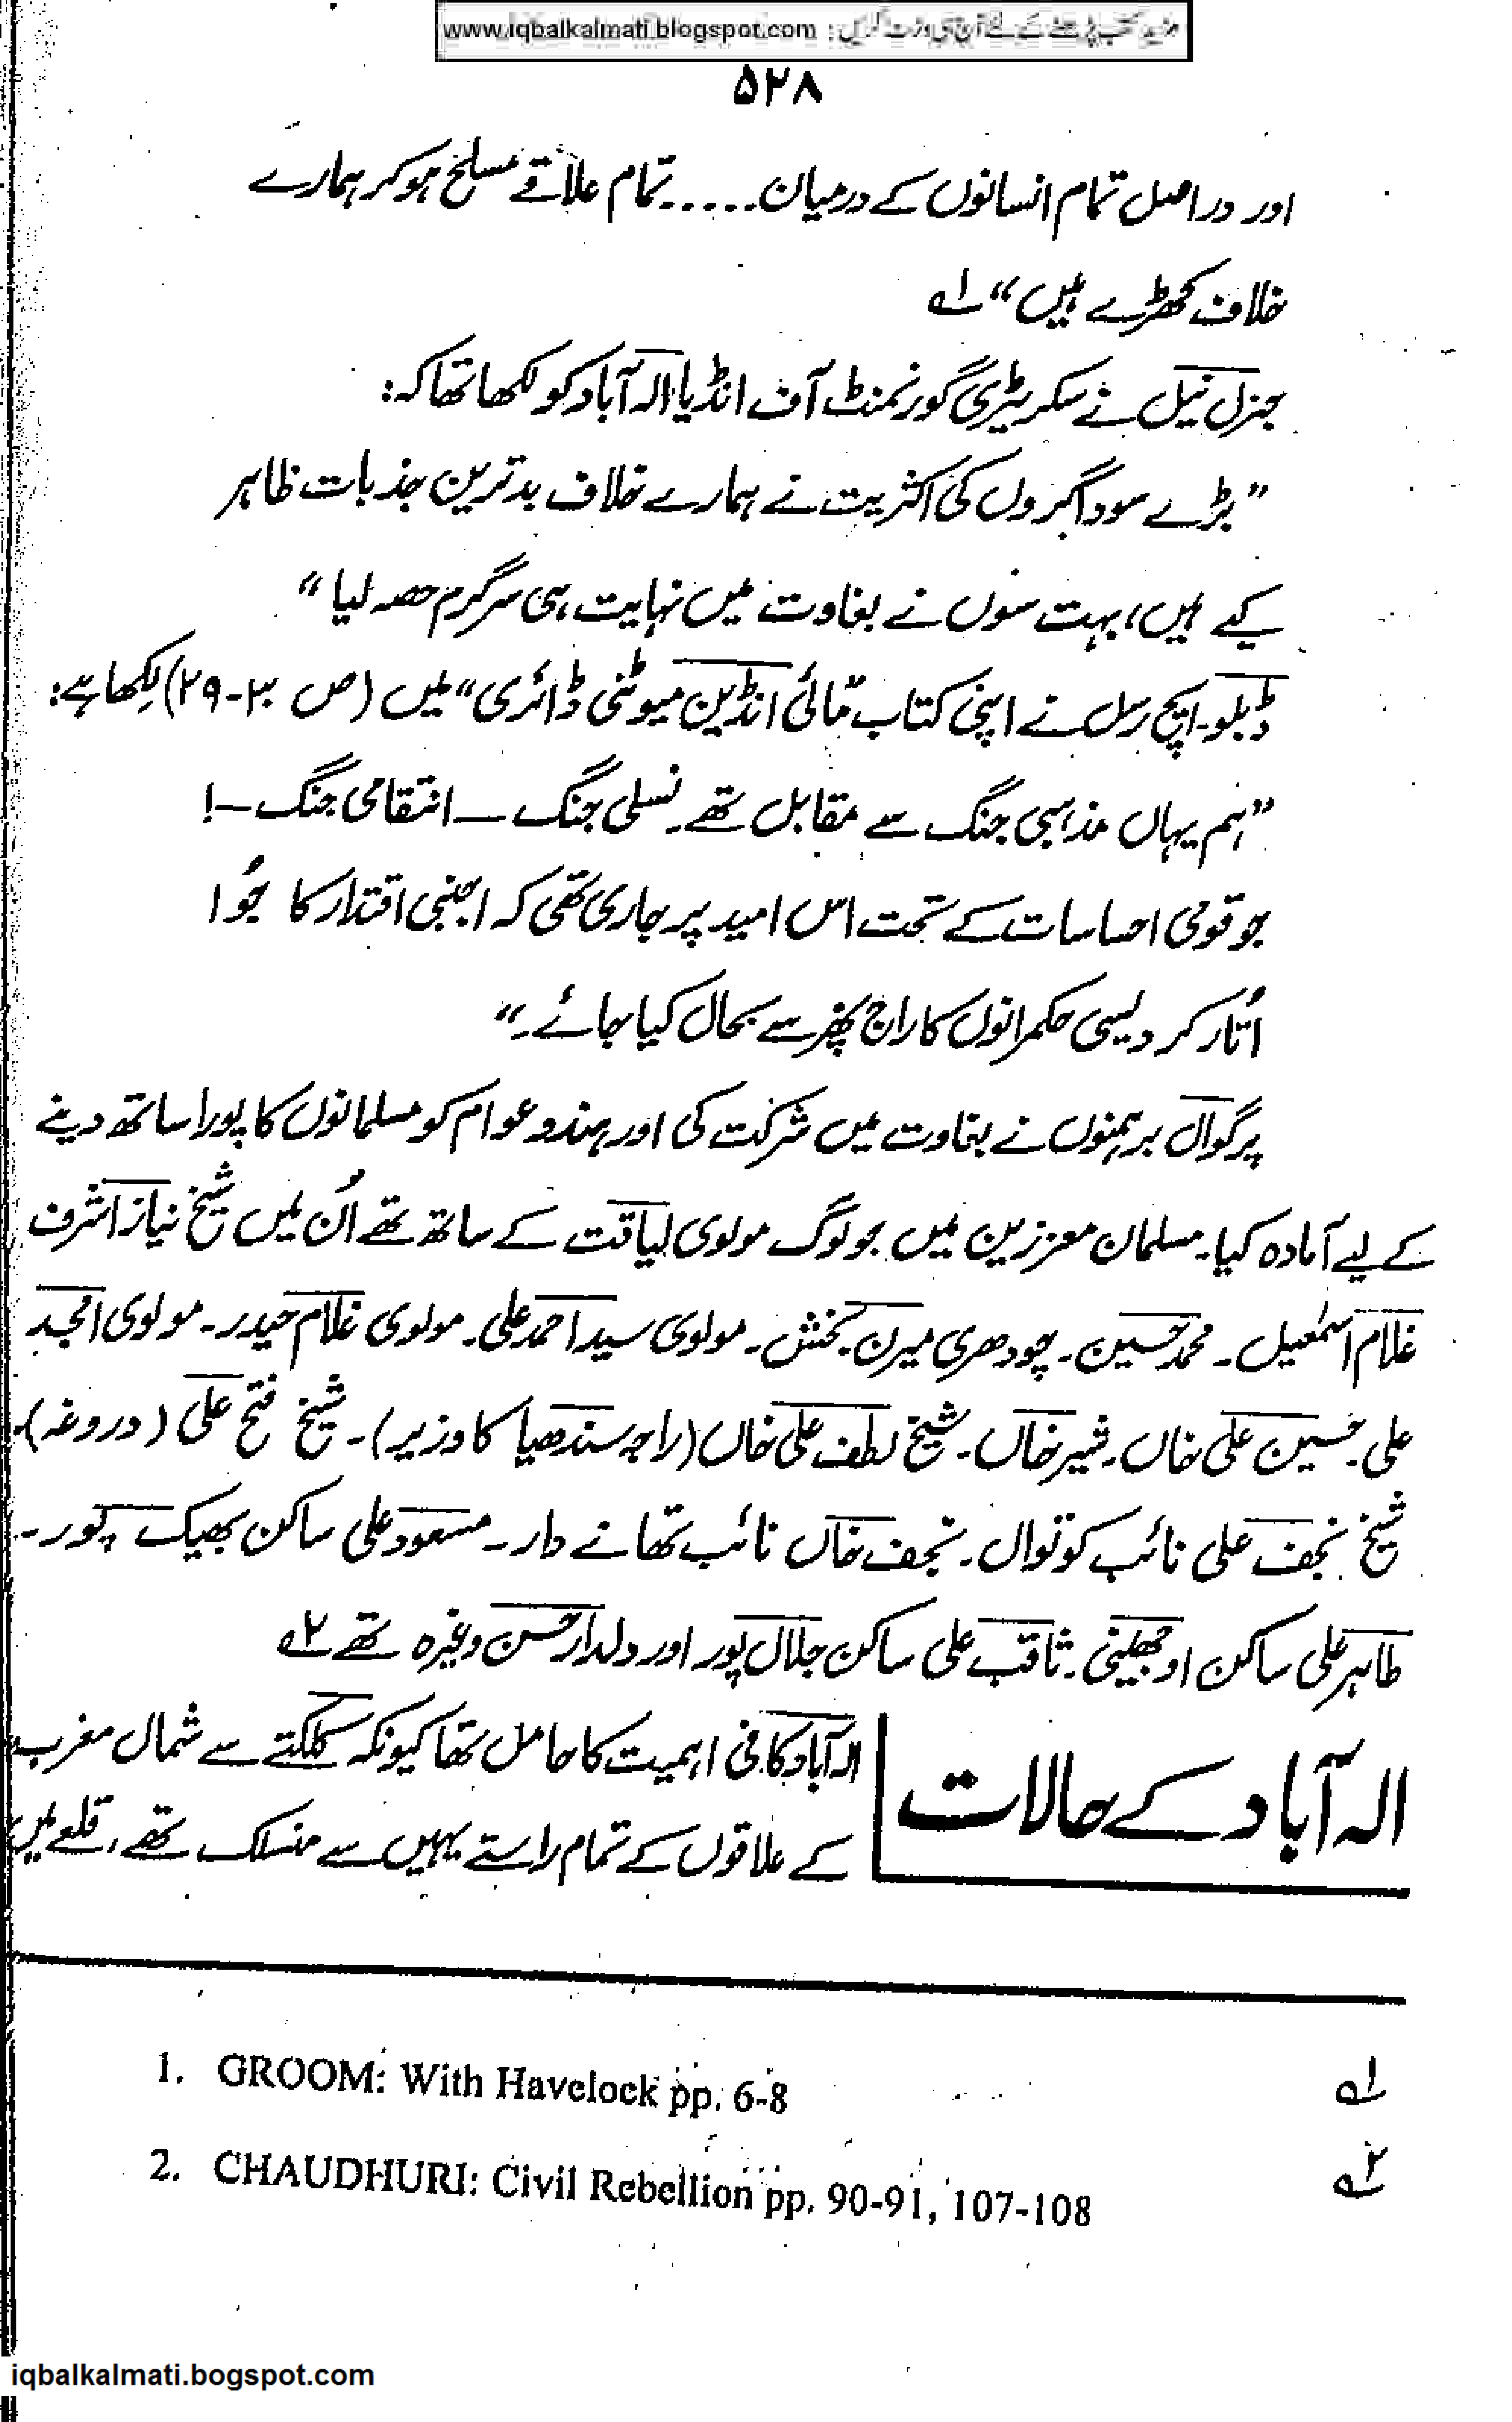 www.iqbalkalmati.blogspot.com : مزید کتب پڑھنے کے لئے آج ہی وزٹ کریں
۵۲۸
اور دراصل تمام انسانوں کے درمیان ..... تمام علاقے مسلح ہو کر ہمارے
خلاف کھڑے ہیں“ ۱؎
جنرل نیل نے سکریٹری گورنمنٹ آف انڈیا الہ آباد کو لکھا تھا کہ:
”بڑے سوداگروں کی اکثریت نے ہمارے خلاف بدترین جذبات ظاہر
کیے ہیں، بہت سوں نے بغاوت میں نہایت ہی سرگرم حصہ لیا“
ڈبلو۔ ایچ رسل نے اپنی کتاب ”مائی انڈین میوٹنی ڈائری“ میں (ص ۳۰-۲۹) لکھا ہے:
”ہم یہاں مذہبی جنگ سے مقابل تھے۔ نسلی جنگ — انتقامی جنگ —!
جو قومی احساسات کے تحت اس امید پر جاری تھی کہ اجنبی اقتدار کا جُوا
اُتار کر دیسی حکمرانوں کا راج پھر سے بحال کیا جائے۔“
پرگوال برہمنوں نے بغاوت میں شرکت کی اور ہندو عوام کو مسلمانوں کا پورا ساتھ دینے
کے لیے آمادہ کیا۔ مسلمان معززین میں جو لوگ مولوی لیاقت کے ساتھ تھے اُن میں شیخ نیاز اشرف
غلام اسمٰعیل۔ محمد حسین۔ چودھری میرن بخش۔ مولوی سید احمد علی۔ مولوی غلام حیدر۔ مولوی امجد
علی۔ حسین علی خاں۔ شیر خاں۔ شیخ لطف علی خاں (راجہ سندھیا کا وزیر)۔ شیخ فتح علی (دروغہ)۔
شیخ نجف علی نائب کوتوال۔ نجف خاں نائب تھانے دار۔ مسعود علی ساکن بھیک پور۔
طاہر علی ساکن اوجھلینی۔ ثاقب علی ساکن جلال پور اور دلدار حسن وغیرہ تھے ۲؎
الہ آباد کے حالات
الہ آباد کافی اہمیت کا حامل تھا کیونکہ کلکتے سے شمال مغرب
کے علاقوں کے تمام راستے یہیں سے منسلک تھے، قلعے میں
1. GROOM: With Havelock pp. 6-8 ۱؎
2. CHAUDHURI: Civil Rebellion pp. 90-91, 107-108 ۲؎
iqbalkalmati.bogspot.com